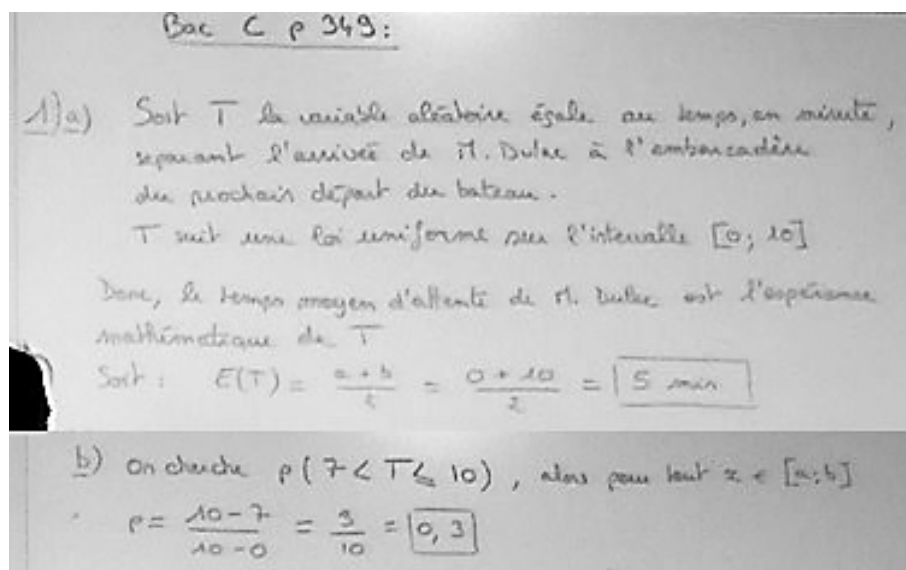 Bac C p 349:
1)a) Soit T la variable aléatoire égale au temps, en minute,
separant l'arrivée de M. Dulac à l'embarcadère
du prochain départ du bateau.
T suit une loi uniforme sur l'intervalle [0; 10]
Donc, le temps moyen d'attente de M. Dulac est l'espérance
mathématique de T
Soit : E(T) = a + b / 2 = 0 + 10 / 2 = 5 min
b) On cherche p(7 < T ≤ 10), alors pour tout x ∈ [a;b]
p = 10 - 7 / 10 - 0 = 3 / 10 = 0,3